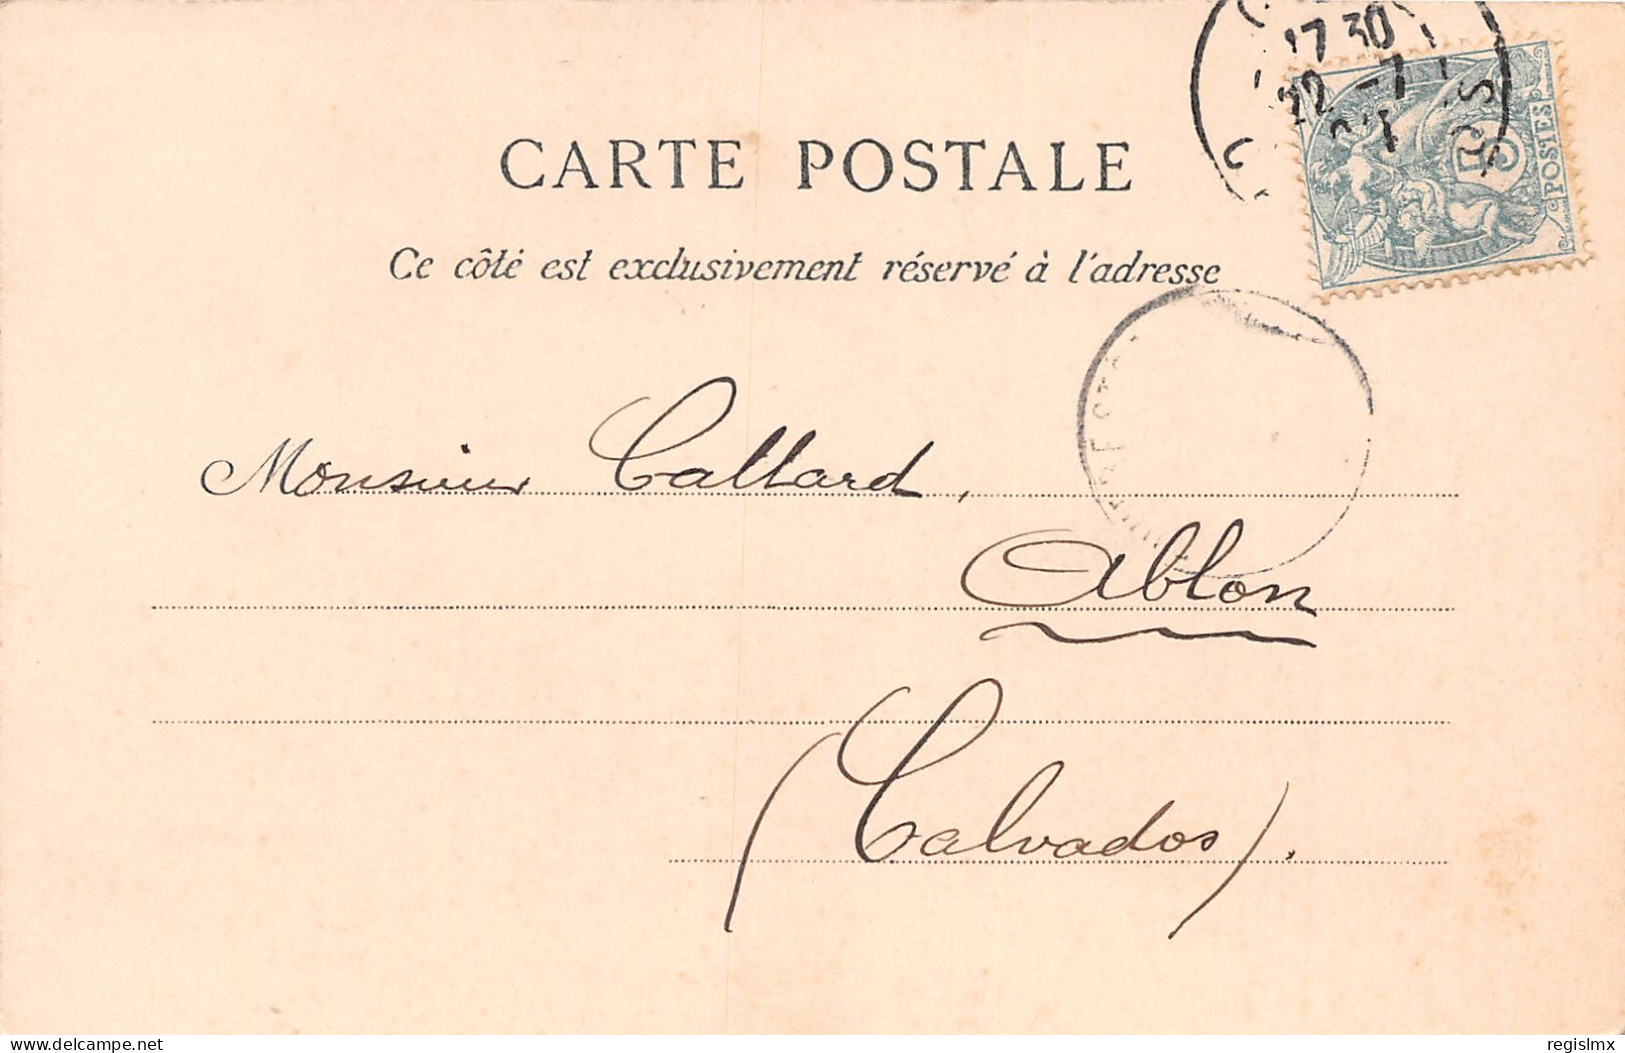 17 30
22 -7
POSTES
CARTE POSTALE
Ce côté est exclusivement réservé à l'adresse
Monsieur Callard,
Ablon
(Calvados).
delcampe.net
regislmx